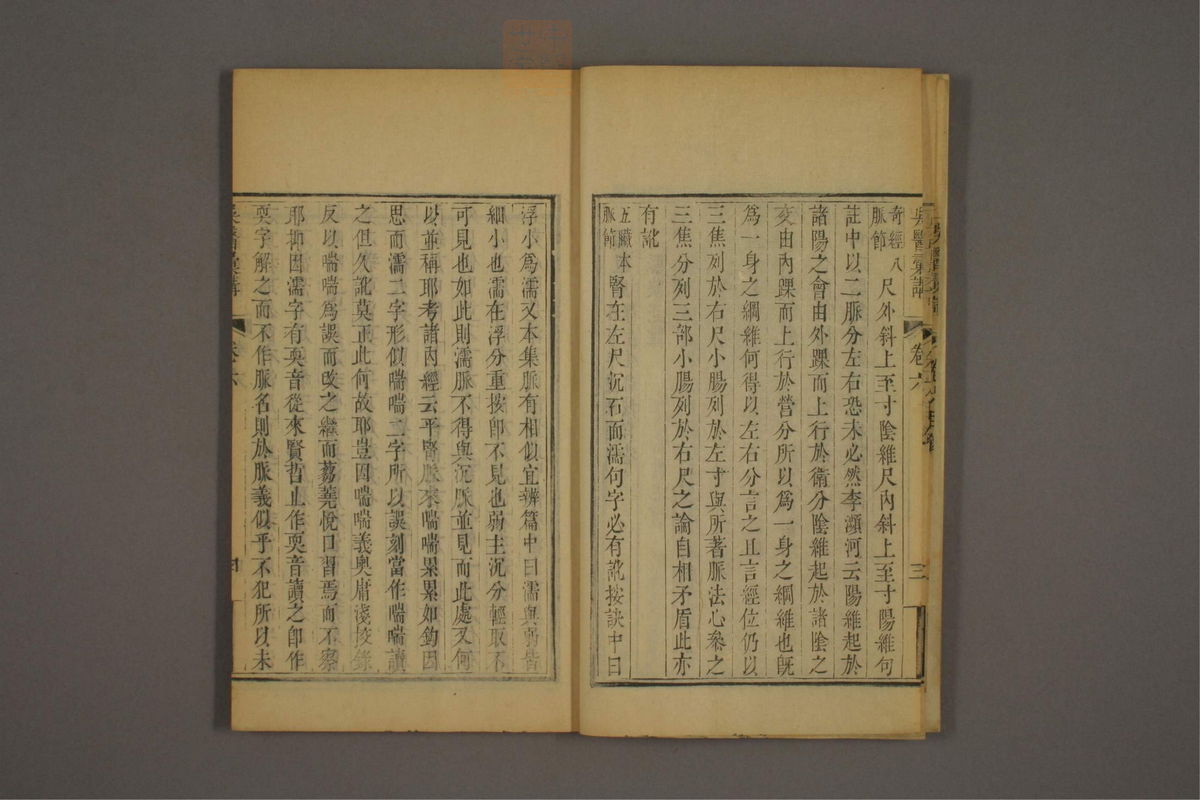 吳醫彙講 卷六 三
奇經八脈節 尺外斜上至寸陰維尺內斜上至寸陽維句
註中以二脈分左右恐未必然李瀕河云陽維起於
諸陽之會由外踝而上行於衛分陰維起於諸陰之
交由內踝而上行於營分所以為一身之綱維也旣
為一身之綱維何得以左右分言之且言經位仍以
三焦列於右尺小腸列於左寸與所著脈法心參之
三焦分列三部小腸列於右尺之論自相矛盾此亦
有訛
五臟本脈節 腎在左尺沉石而濡句字必有訛按訣中曰
浮小為濡又本集脈有相似宜辨篇中曰濡與弱皆
細小也濡在浮分重按卽不見也弱主沉分輕取不
可見也如此則濡脈不得與沉脈並見而此處又何
以並稱耶考諸內經云平腎脈來喘喘累累如鈎因
思而濡二字形似喘喘二字所以誤刻當作喘喘讀
之但久訛莫正此何故耶豈因喘喘義奧庸淺挍錄
反以喘喘為誤而改之繼而蒭蕘悅口習焉而不察
耶抑因濡字有耎音從來賢哲止作耎音讀之卽作
耎字解之而不作脈名則於脈義似乎不犯所以未
吳醫彙講 卷六 四